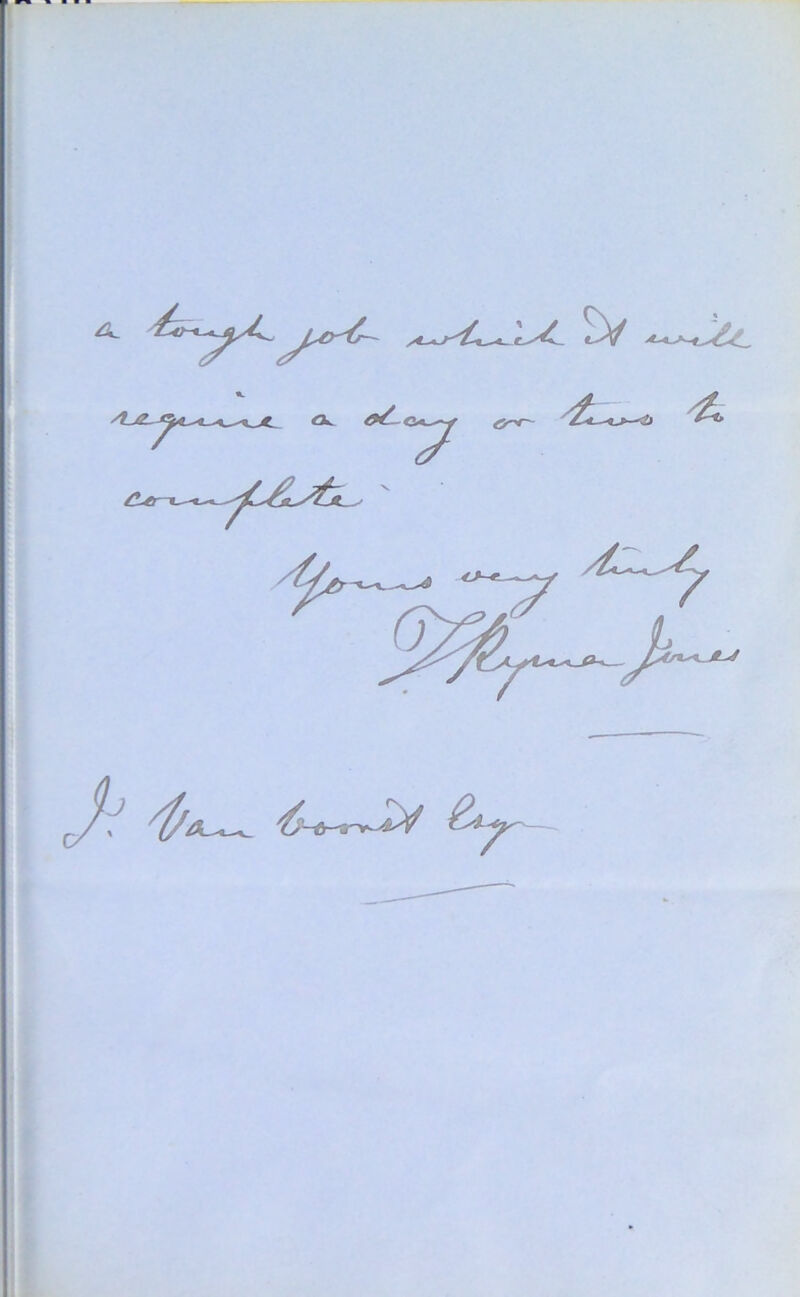 a tough job which it will
require a day or two to
complete
Yours very truly
T Rymer Jones
J. Van Voorst Esq